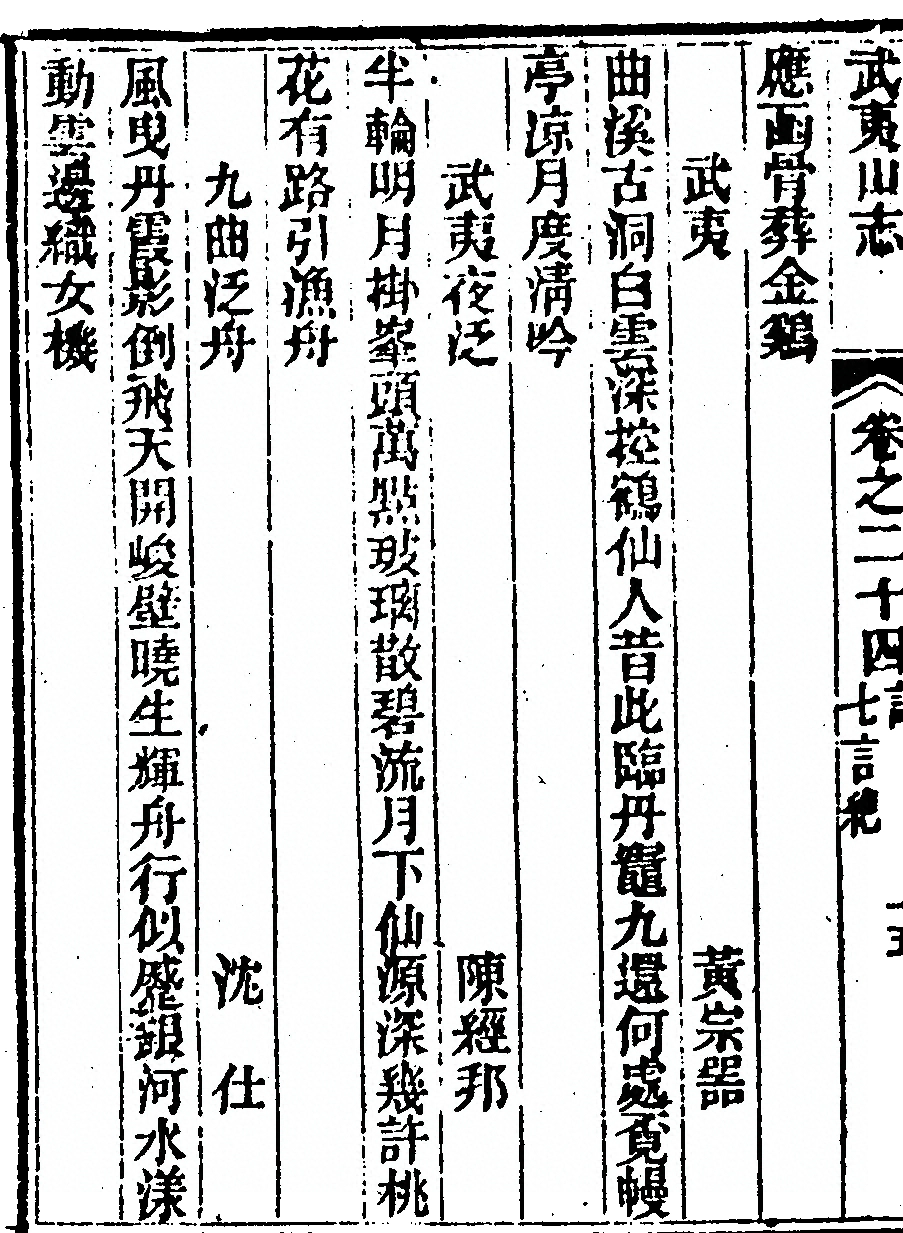 武夷山志
卷之二十四詩
七言絶
十五
應函骨葬金鷄
武夷　黃宗器
曲溪古洞白雲深控鶴仙人昔此臨丹竈九還何處覓幔
亭凉月度淸吟
武夷夜泛　陳經邦
半輪明月掛峯頭萬點玻璃散碧流月下仙源深幾許桃
花有路引漁舟
九曲泛舟　沈仕
風曳丹霞影倒飛天開峻壁曉生輝舟行似蹙銀河水漾
動雲邊織女機